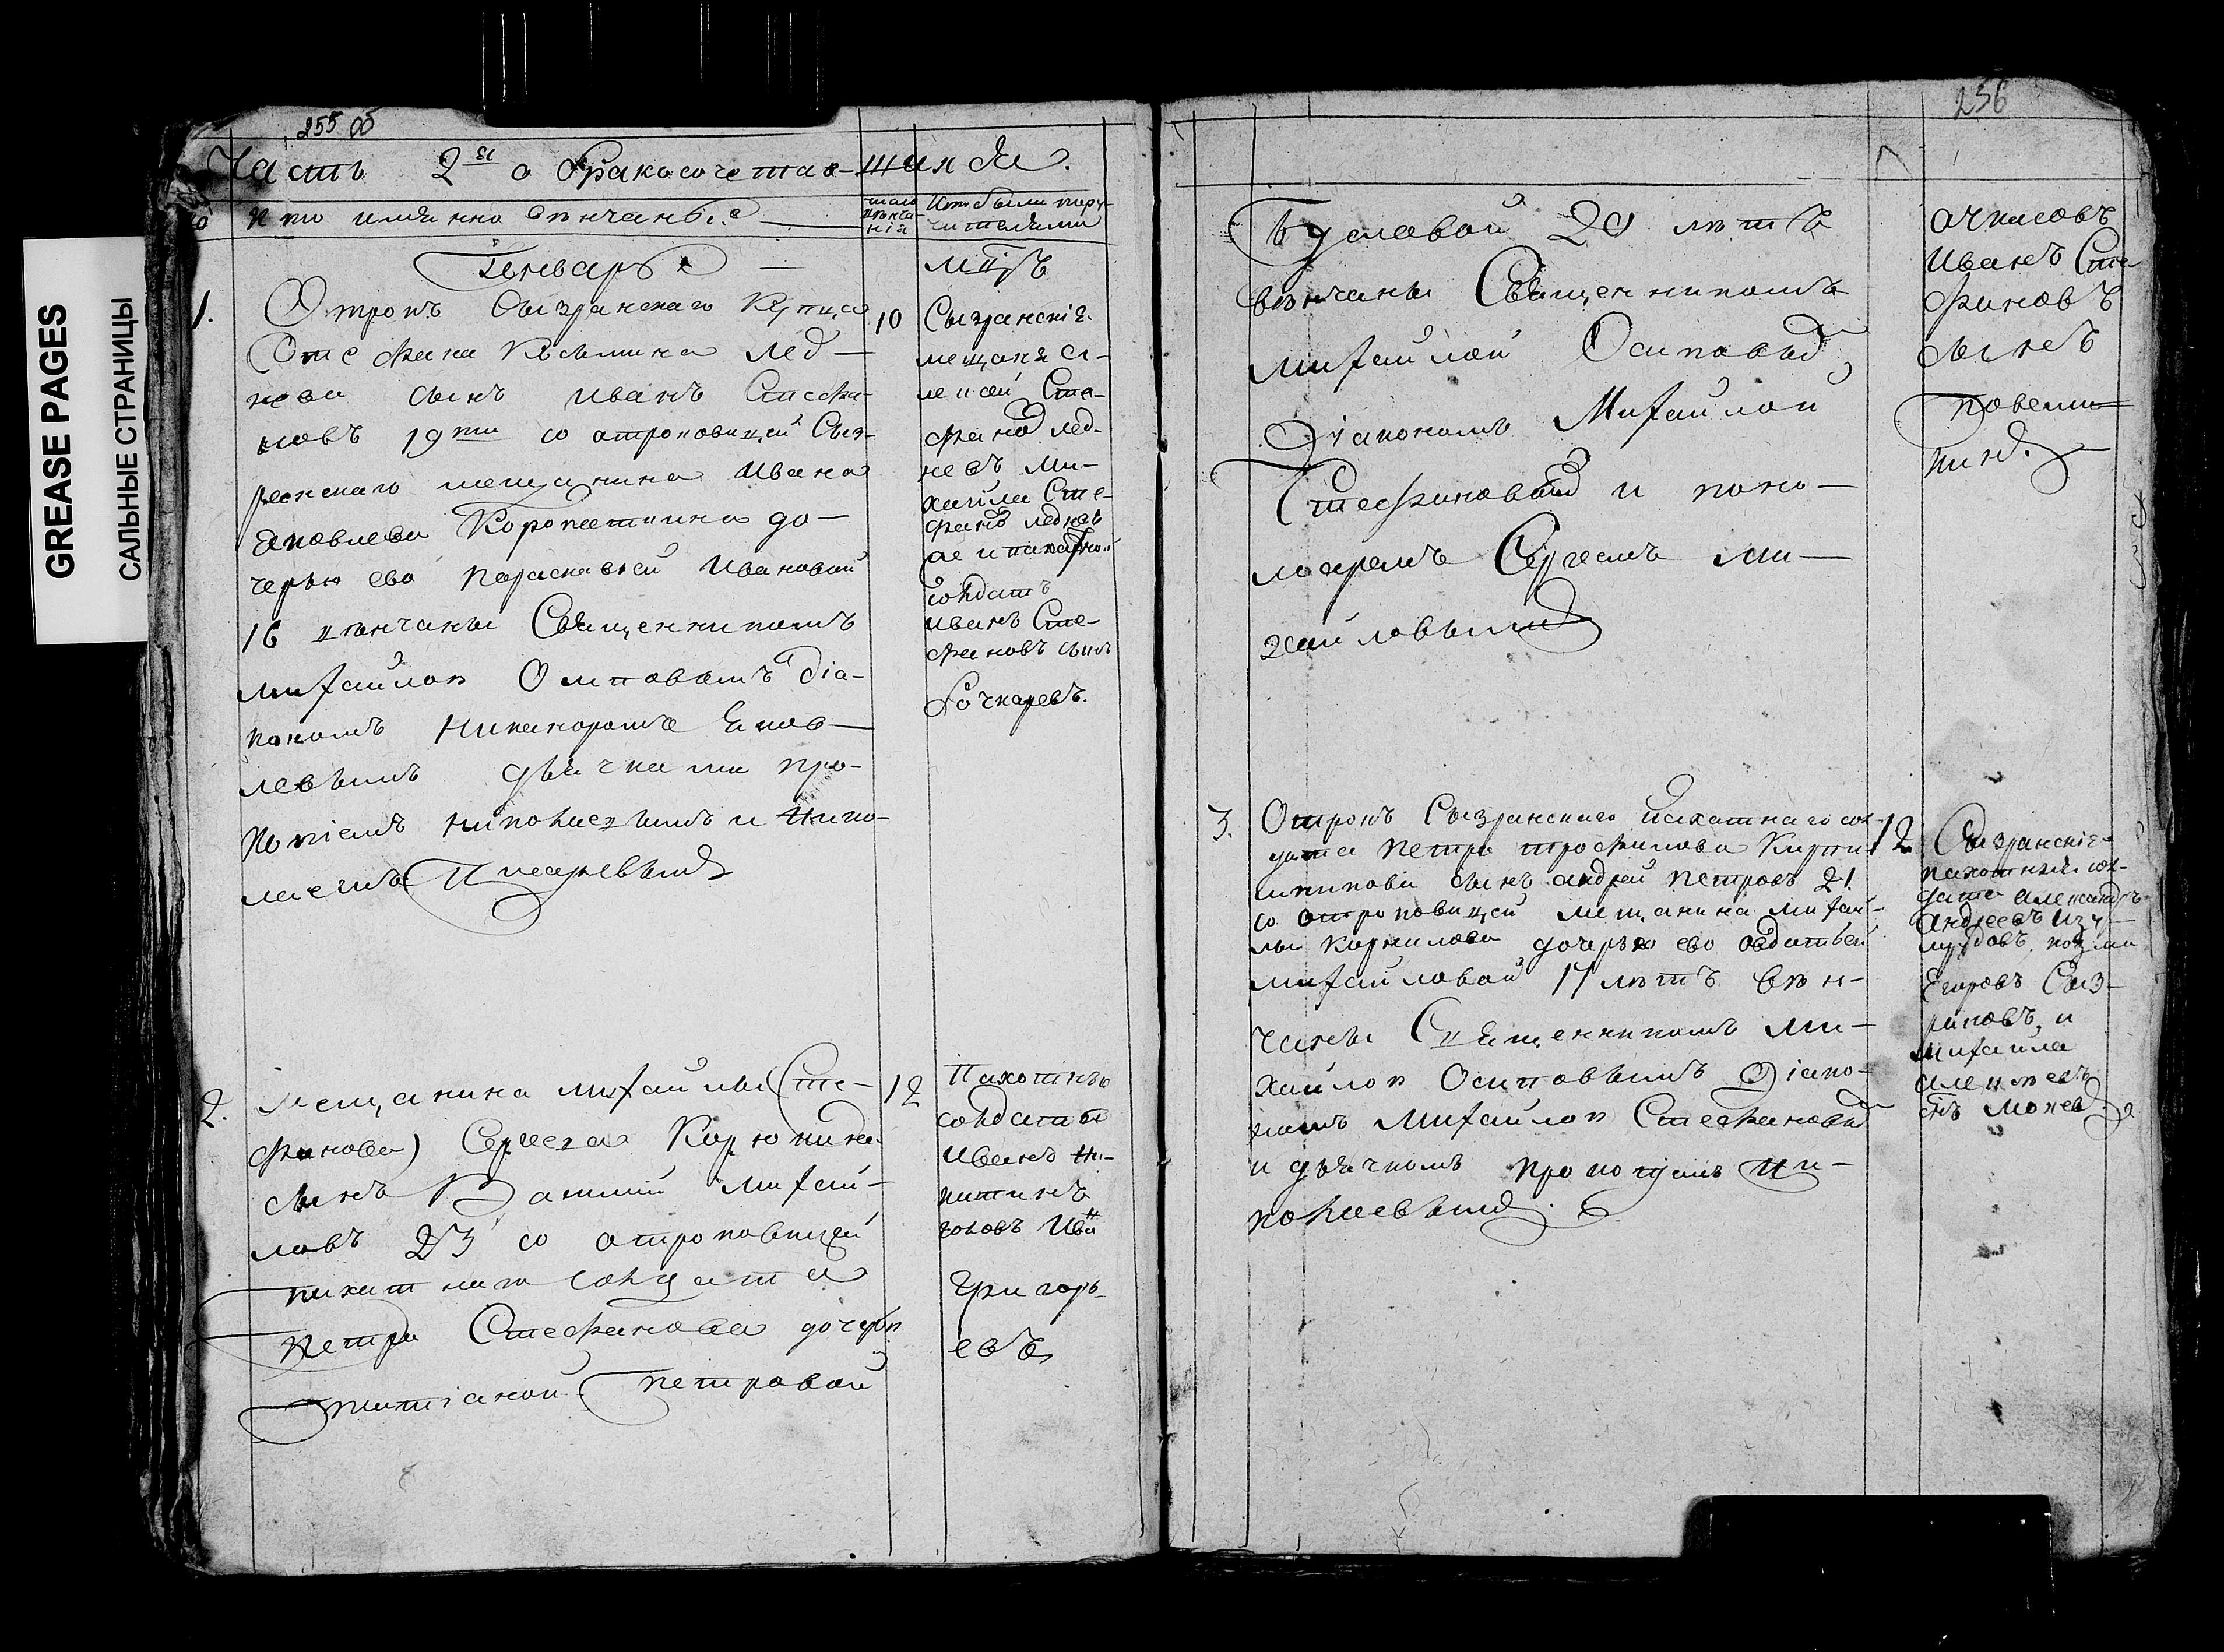 GREASE PAGES
САЛЬНЫЕ СТРАНИЦЫ
255 об
Часть 2я о бракосочетав-шихся.
кто имянно венчаны
число венча-нiя
Кто были пору-
чителями
Генварь
мцъ
1.
Отрокъ Сызранскаго Купца
Стефана Козмина Лед-
нева сынъ Иванъ Стефа-
новъ 19ти со отроковицей Сыз-
ранскаго мещанина Ивана
Яковлева дo-
черью ево Параскевiей Ивановой
16 венчаны Священникомъ
Михаилом Осиповымъ дiа-
кономъ Никаноромъ Яков-
левымъ дьячками Про-
копiемъ Николаевымъ и Нико-
лаемъ Писаревымъ
10
Сызранскiе
мещаня а-
лексей Сте-
фановъ Лед-
невъ ми-
хайла Сте-
фановъЛедневъ
же и пахатной
солдатъ
Иванъ Сте-
фановъ сынъ
Бочкаревъ.
2.
Мещанина Михайлы (Сте-
фанова) Сергеева Корюкина
сынъ Михай-
ловъ 23 со отроковицей
пахатнаго солдата
Петра Стефанова дочерью
Татiаной Петровой
12
Пахотные
солдаты
Иванъ Ни-
китинъ
Григорь-
евъ
256
Бусловой 20 летъ
венчаны Священникомъ
Михаилом Осиповымъ
Дiакономъ Михаилом
Стефановымъ и поно-
маремъ Сергеемъ Ми-
хайловымъ
Иванъ Сте
фановъ
сынъ
3.
Отрокъ Сызранскаго пахатнаго сол-
дата Петра Трофимова Кирпи-
шникова сынъ Андрей Петровъ 21
со отроковицей мещанина Михай-
лы Корнилова дочерью ево Авдотьей
Михайловой 17 летъ вен-
чаны Священникомъ Ми-
хайлом Осиповымъ Дiако-
номъ Михайлом Стефановымъ
и дьячкомъ Прокопiемъ Ни-
колаевымъ.
12
Сызранскiе
пахотный сол-
датъ Александръ
Андреевъ Изу-
мрудовъ, козма
Егоровъ Сыз-
рановъ, и
Михайла
Алексеевъ